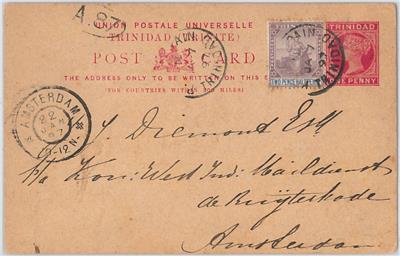 A.97
UNION POSTALE UNIVERSELLE
TRINIDAD
POST CARD
THE ADDRESS ONLY TO BE WRITTEN ON THIS
(FOR COUNTRIES WITHIN 300 MILES)
TRINIDAD
ONE PENNY
TRINIDAD
AMSTERDAM
22
97
10-12 N
J. Diemont Esq
p/a Kon: West Ind: Maildienst
de Ruyterkade
Amsterdam